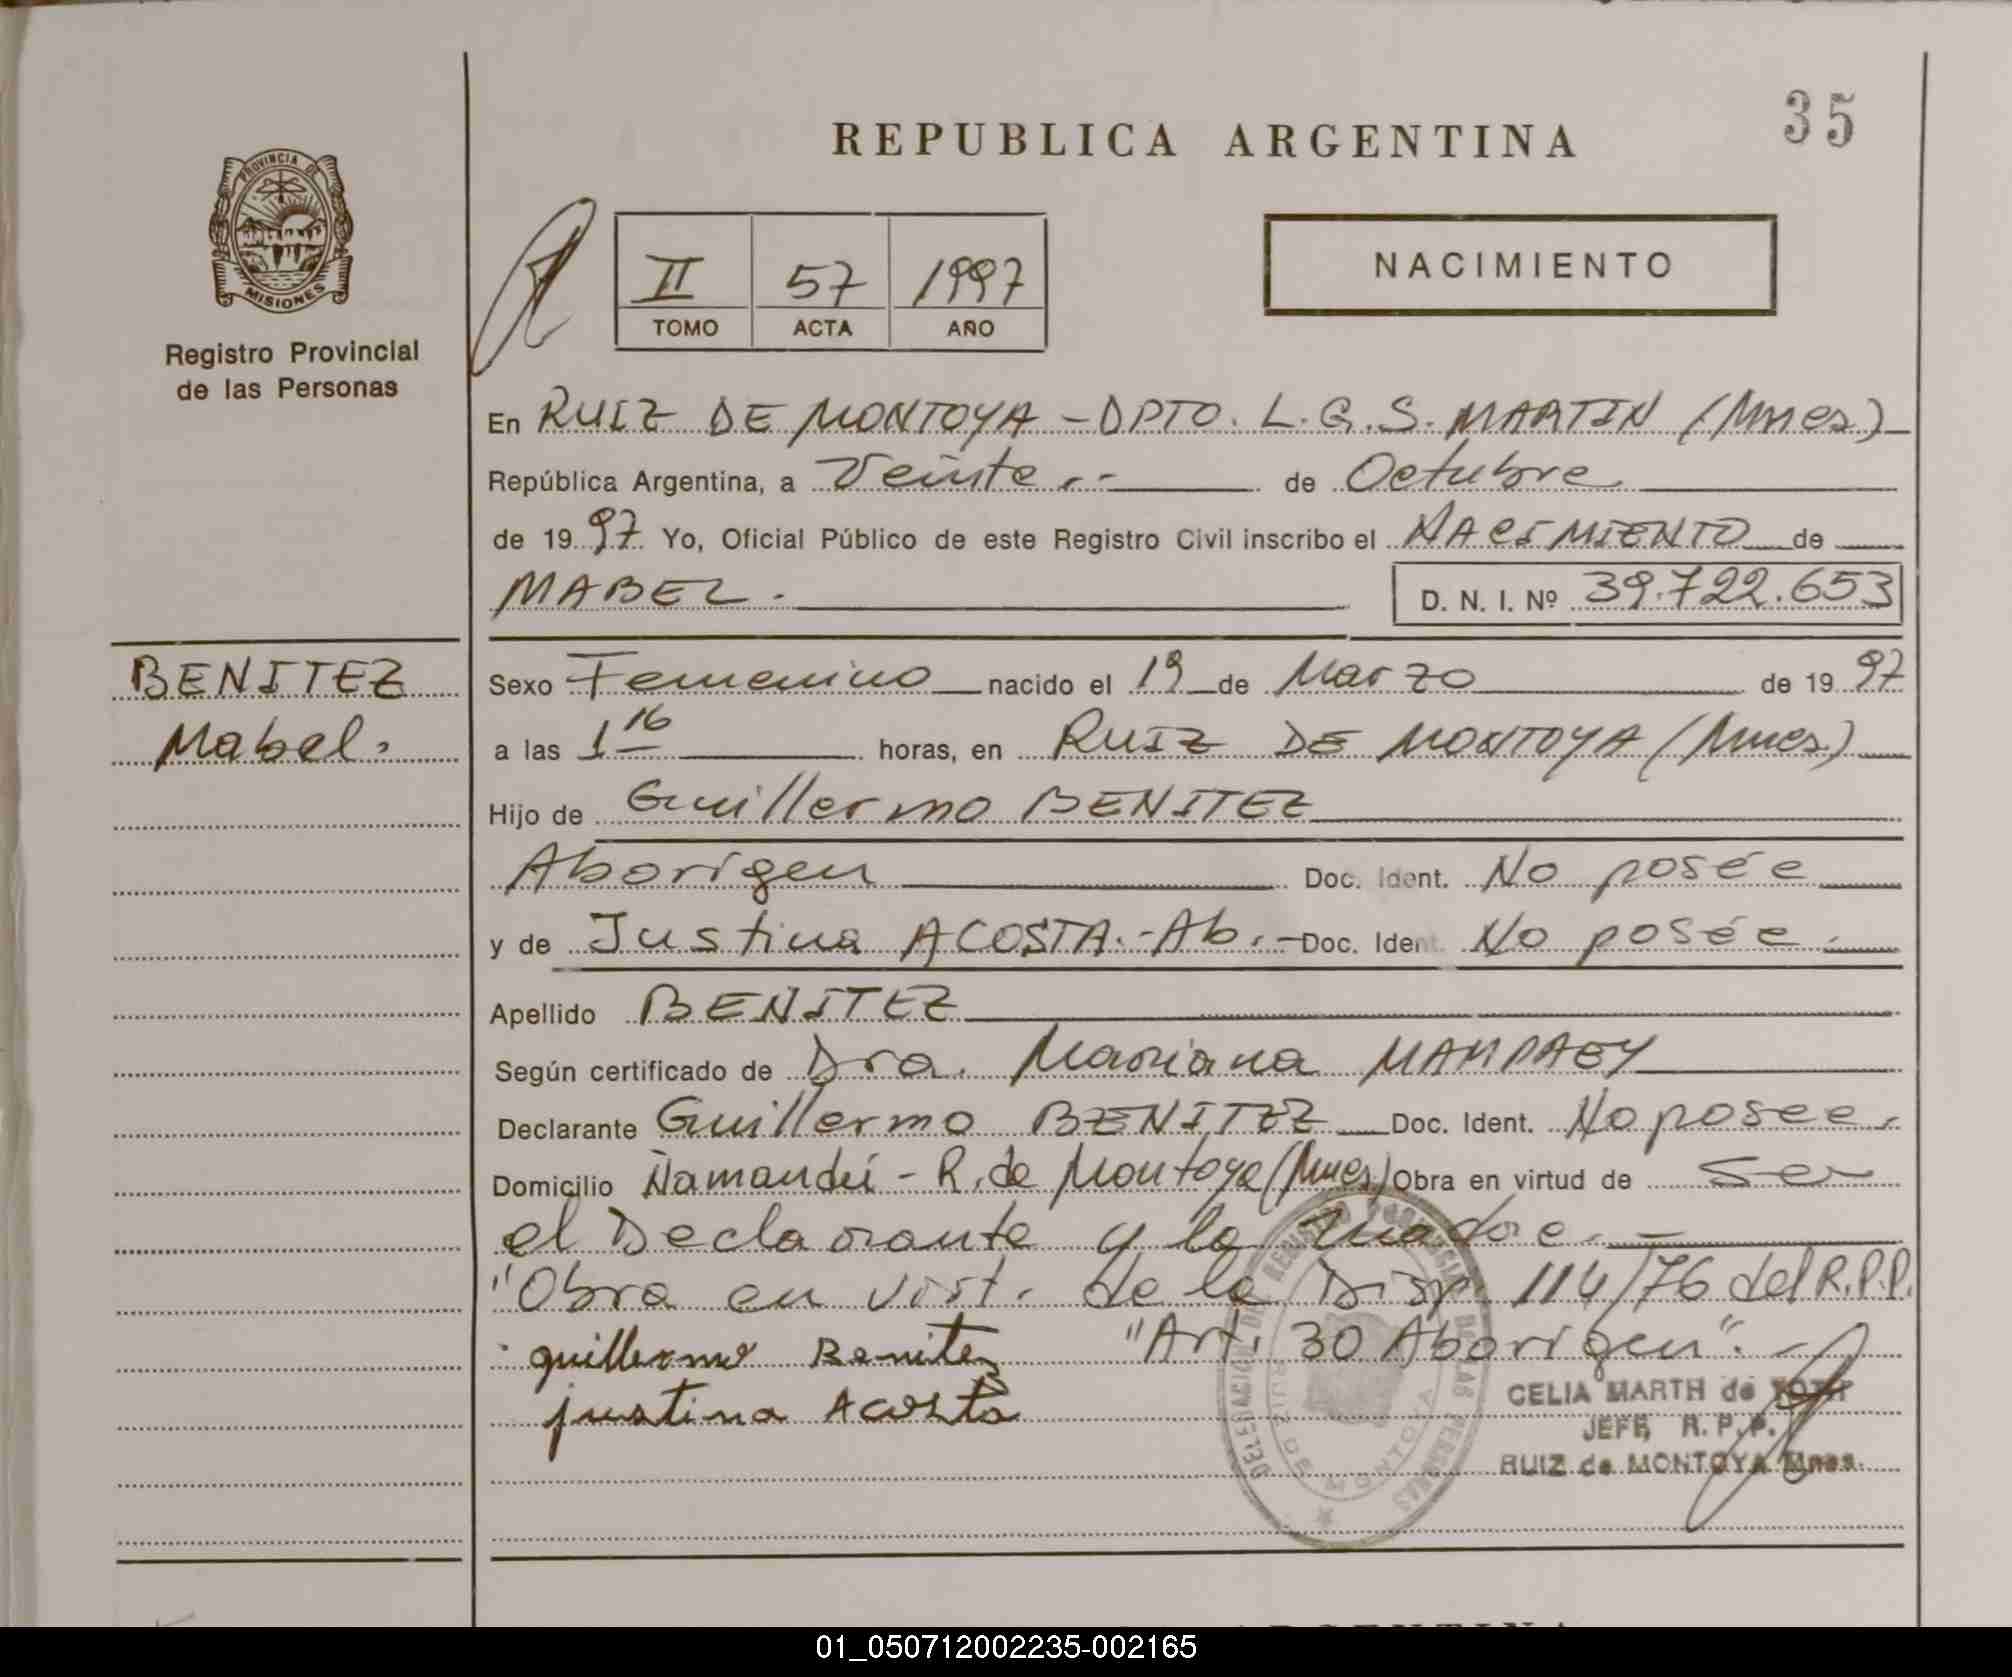 35
REPUBLICA ARGENTINA
PROVINCIA DE
MISIONES
Registro Provincial
de las Personas
II 57 1997
TOMO ACTA AÑO
NACIMIENTO
En RUIZ DE MONTOYA - DPTO. L.G.S. MARTIN (Mnes)
República Argentina, a Veinte.-- de Octubre
de 1997 Yo, Oficial Público de este Registro Civil inscribo el NACIMIENTO de
MABEL. D. N. I. Nº 39.722.653
BENITEZ
Mabel.
Sexo Femenino nacido el 19 de Marzo de 1997
a las 1 16 horas, en RUIZ DE MONTOYA (Mnes)
Hijo de Guillermo BENITEZ
Aborigen Doc. Ident. No posée
y de Justina ACOSTA.-Ab.- Doc. Ident. No posée.
Apellido BENITEZ
Según certificado de Dra. Mariana MAMPAEY
Declarante Guillermo BENITEZ Doc. Ident. No posee.
Domicilio Ñamandú - R. de Montoya (Mnes) Obra en virtud de ser
el Declarante y la madre.-
"Obra en virt. de la Disp. 114/76 del R.P.P.
"Art. 30 Aborigen".
guillermo Benitez
justina Acosta
DELEGACION DEL REGISTRO PROVINCIAL DE LAS PERSONAS
RUIZ DE MONTOYA
CELIA MARTH de
JEFE R. P. P.
RUIZ de MONTOYA Mnes.
ARGENTINA
01_050712002235-002165